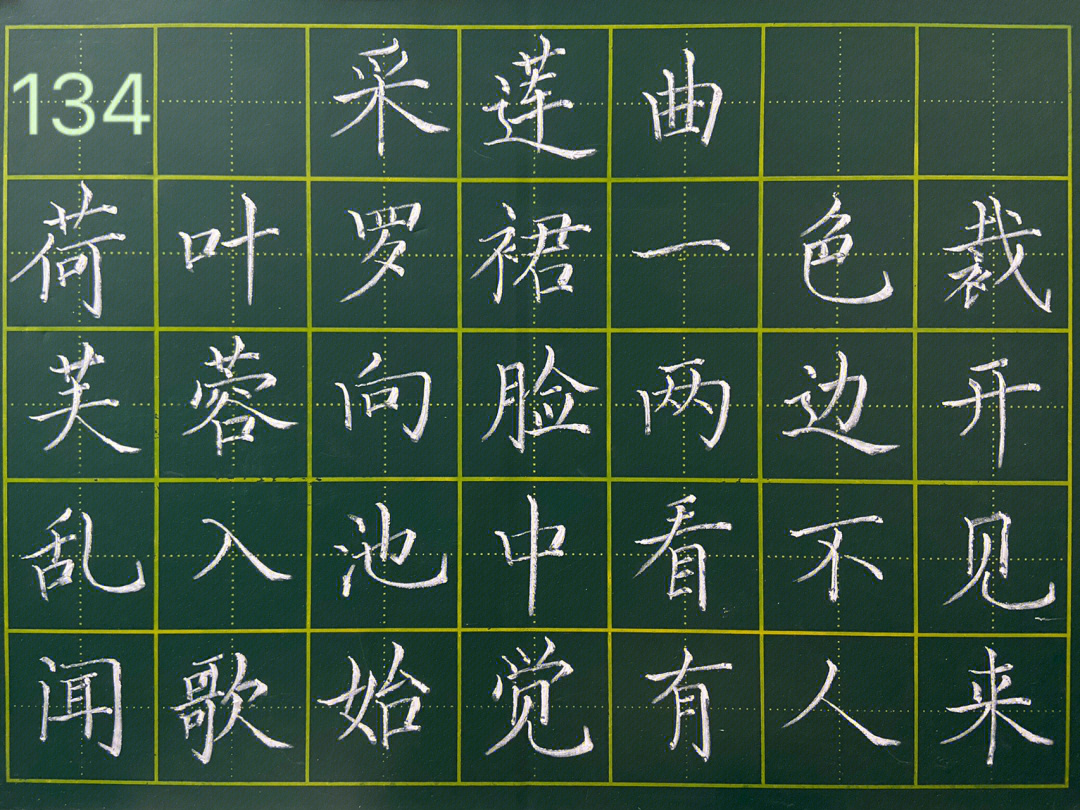 134 采莲曲
荷叶罗裙一色裁
芙蓉向脸两边开
乱入池中看不见
闻歌始觉有人来